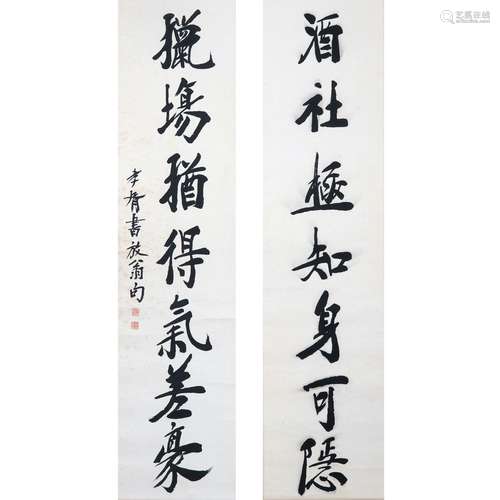 酒社極知身可隱
獵場猶得氣差豪
孝胥書放翁句
艺狐在线